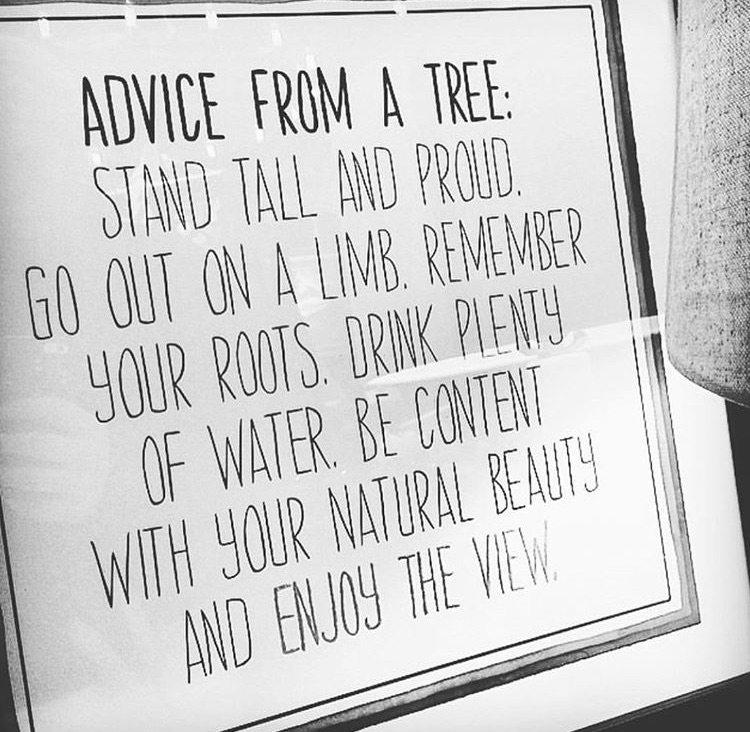 ADVICE FROM A TREE:
STAND TALL AND PROUD.
GO OUT ON A LIMB. REMEMBER
YOUR ROOTS. DRINK PLENTY
OF WATER. BE CONTENT
WITH YOUR NATURAL BEAUTY
AND ENJOY THE VIEW.